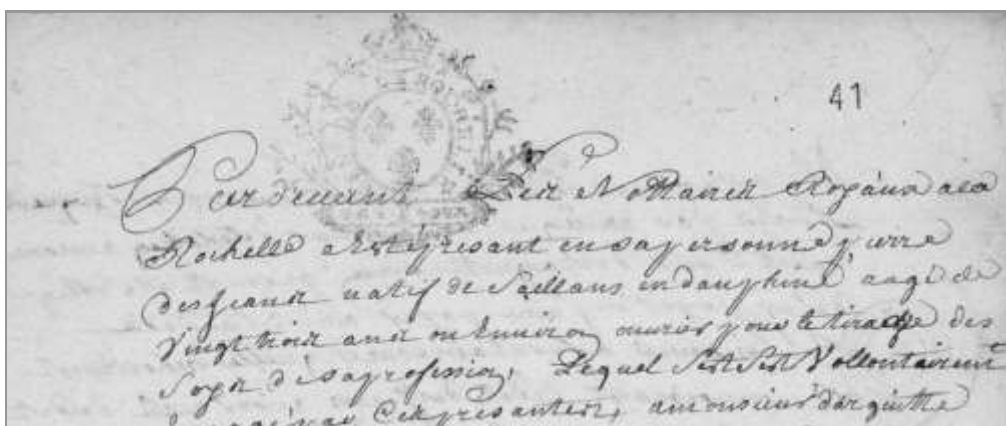 41
Par devant Les Nottaires Royaux ala
Rochelle a Esté presant en sa personne pierre
desjeans natif de Saillans en dauphiné aagé de
vingt trois ans ou Environ ouvrier pour le tirage des
soyes de sa profession, Lequel Sest Vollontairemt
par Ces presantes, a monsieur